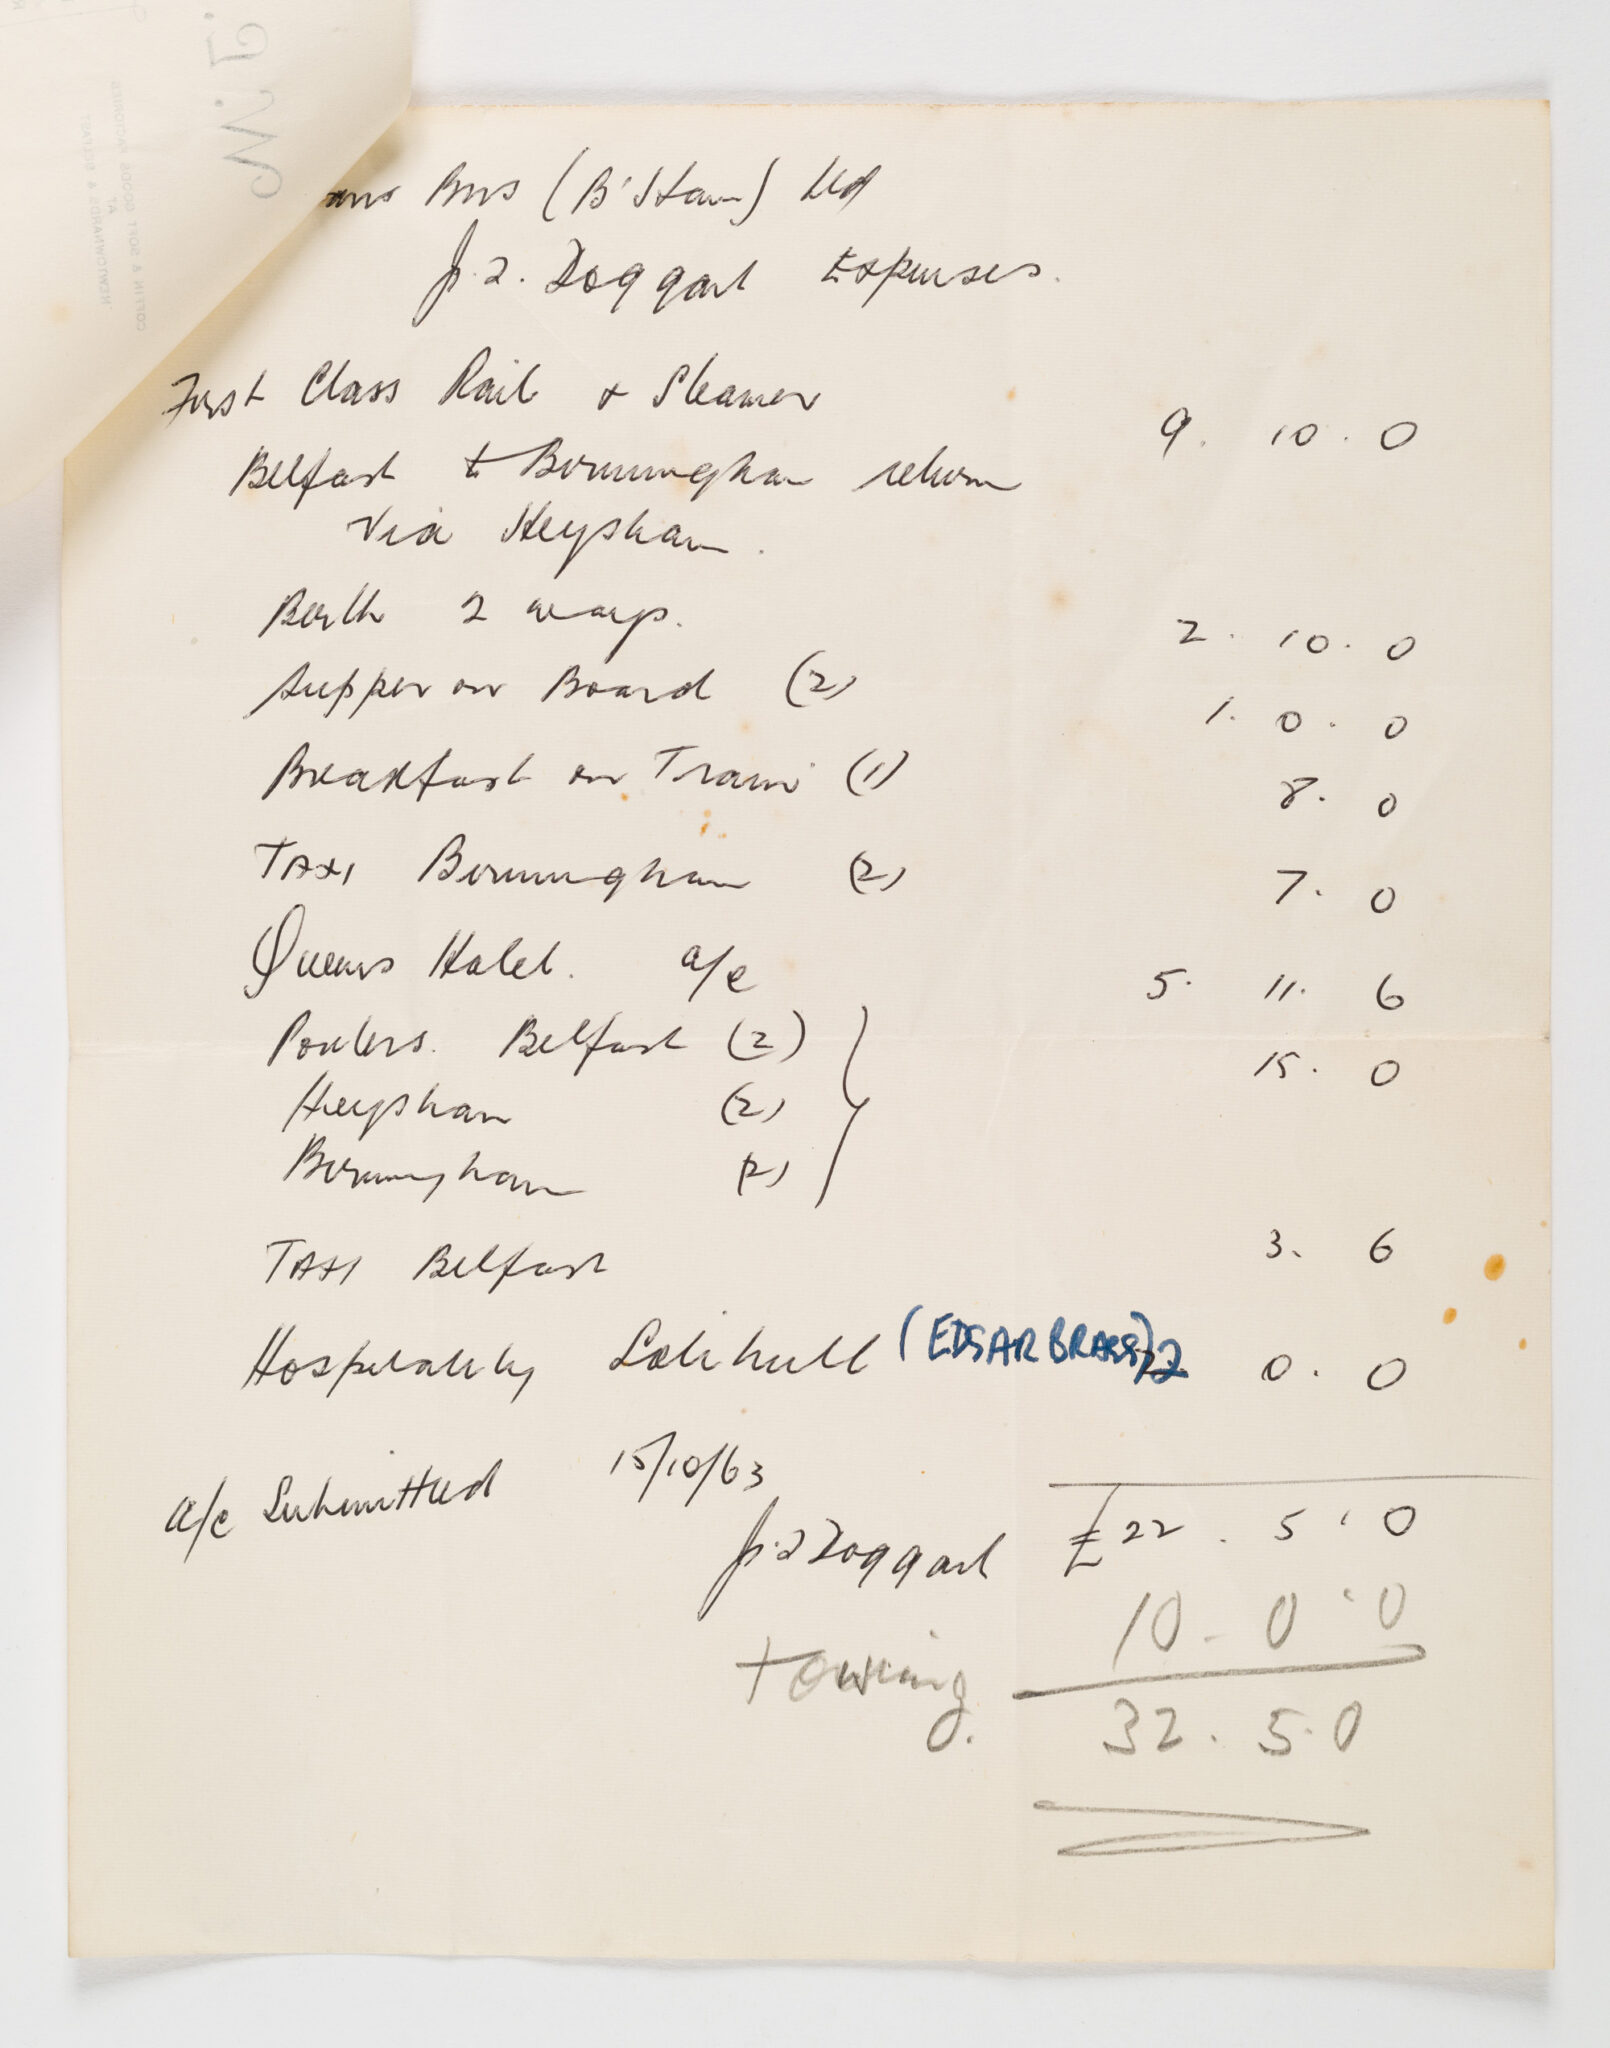 Bros (B'Ham) Ltd
J. 2. Doggart Expenses.
First Class Rail & Steamer 9. 10. 0
Belfast to Birmingham return
Via Heysham.
Berth 2 ways. 2. 10. 0
Supper on Board (2) 1. 0. 0
Breakfast on Train (1) 8. 0
TAXI Birmingham (2) 7. 0
Queens Hotel. a/c 5. 11. 6
Porters. Belfast (2) 15. 0
Heysham (2)
Birmingham (2)
TAXI Belfast 3. 6
Hospitality Solihull (EDGAR BRASS) 2 0. 0
a/c Submitted 15/10/63
J. 2 Doggart £22. 5. 0
10. 0. 0
+ owing. 32. 5. 0
COFFIN & SOFT GOODS FACTORIES
AT
NEWTOWNARDS & BELFAST